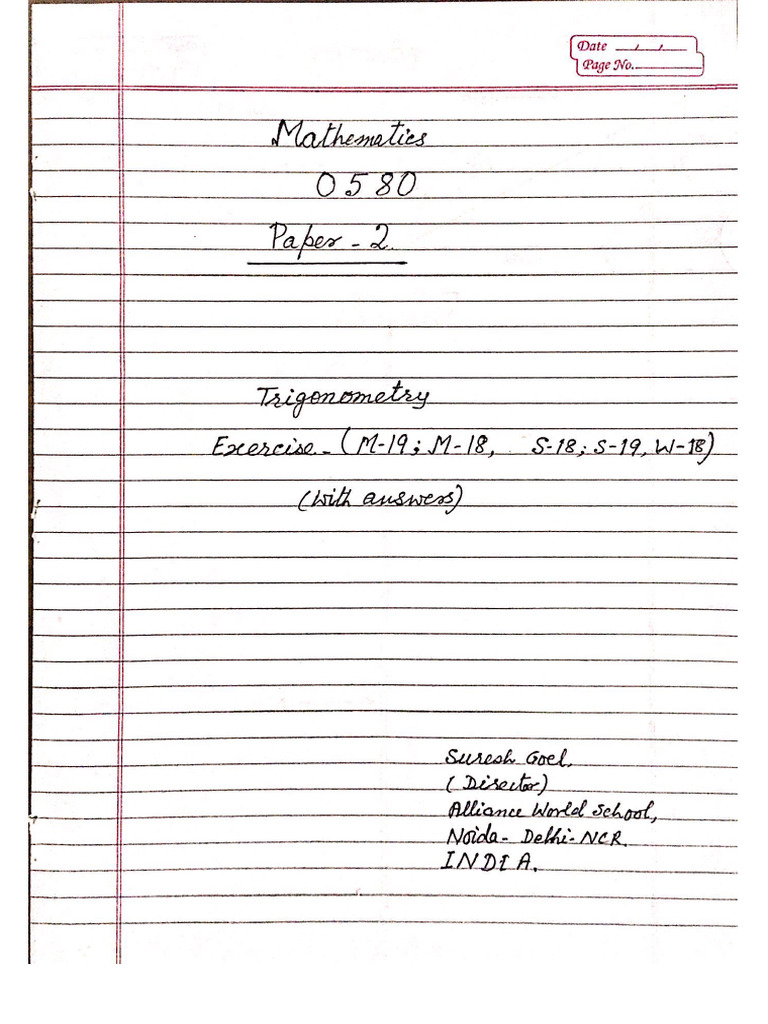 Date __/__/__
Page No.
Mathematics
0580
Paper - 2.
Trigonometry
Exercise - (M-19; M-18, S-18; S-19, W-18)
(With answers)
Suresh Goel.
(Director)
Alliance World School,
Noida - Delhi-NCR.
INDIA.